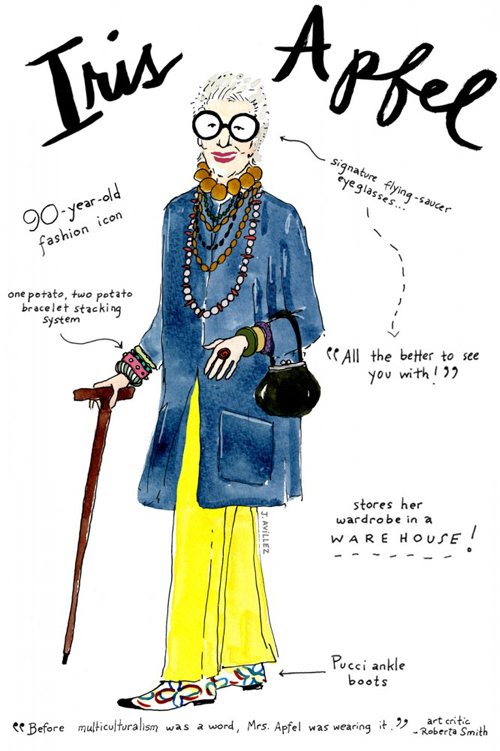 Iris Apfel
signature flying-saucer
eyeglasses...
90-year-old
fashion icon
one potato, two potato
bracelet stacking
system
"All the better to see
you with!"
stores her
wardrobe in a
WAREHOUSE!
J. AVILLEZ
Pucci ankle
boots
"Before multiculturalism was a word, Mrs. Apfel was wearing it."
art critic
- Roberta Smith